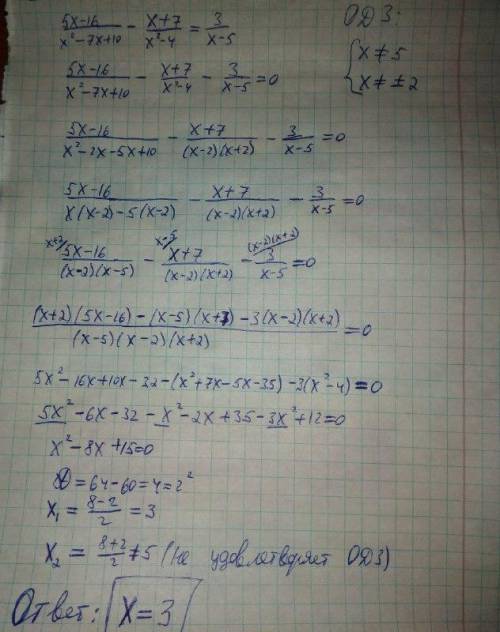 (5x-16)/(x²-7x+10) - (x+7)/(x²-4) = 3/(x-5)
ОДЗ:
{ x ≠ 5
x ≠ ±2
(5x-16)/(x²-7x+10) - (x+7)/(x²-4) - 3/(x-5) = 0
(5x-16)/(x²-2x-5x+10) - (x+7)/((x-2)(x+2)) - 3/(x-5) = 0
(5x-16)/(x(x-2)-5(x-2)) - (x+7)/((x-2)(x+2)) - 3/(x-5) = 0
x+2/ (5x-16)/((x-2)(x-5)) - x-5/ (x+7)/((x-2)(x+2)) - (x-2)(x+2)/ 3/(x-5) = 0
((x+2)(5x-16)-(x-5)(x+7)-3(x-2)(x+2))/((x-5)(x-2)(x+2)) = 0
5x²-16x+10x-32-(x²+7x-5x-35)-3(x²-4)=0
5x²-6x-32-x²-2x+35-3x²+12=0
x²-8x+15=0
D=64-60=4=2²
x₁ = (8-2)/2 = 3
x₂ = (8+2)/2 ≠ 5 (не удовлетворяет ОДЗ)
Ответ: x=3